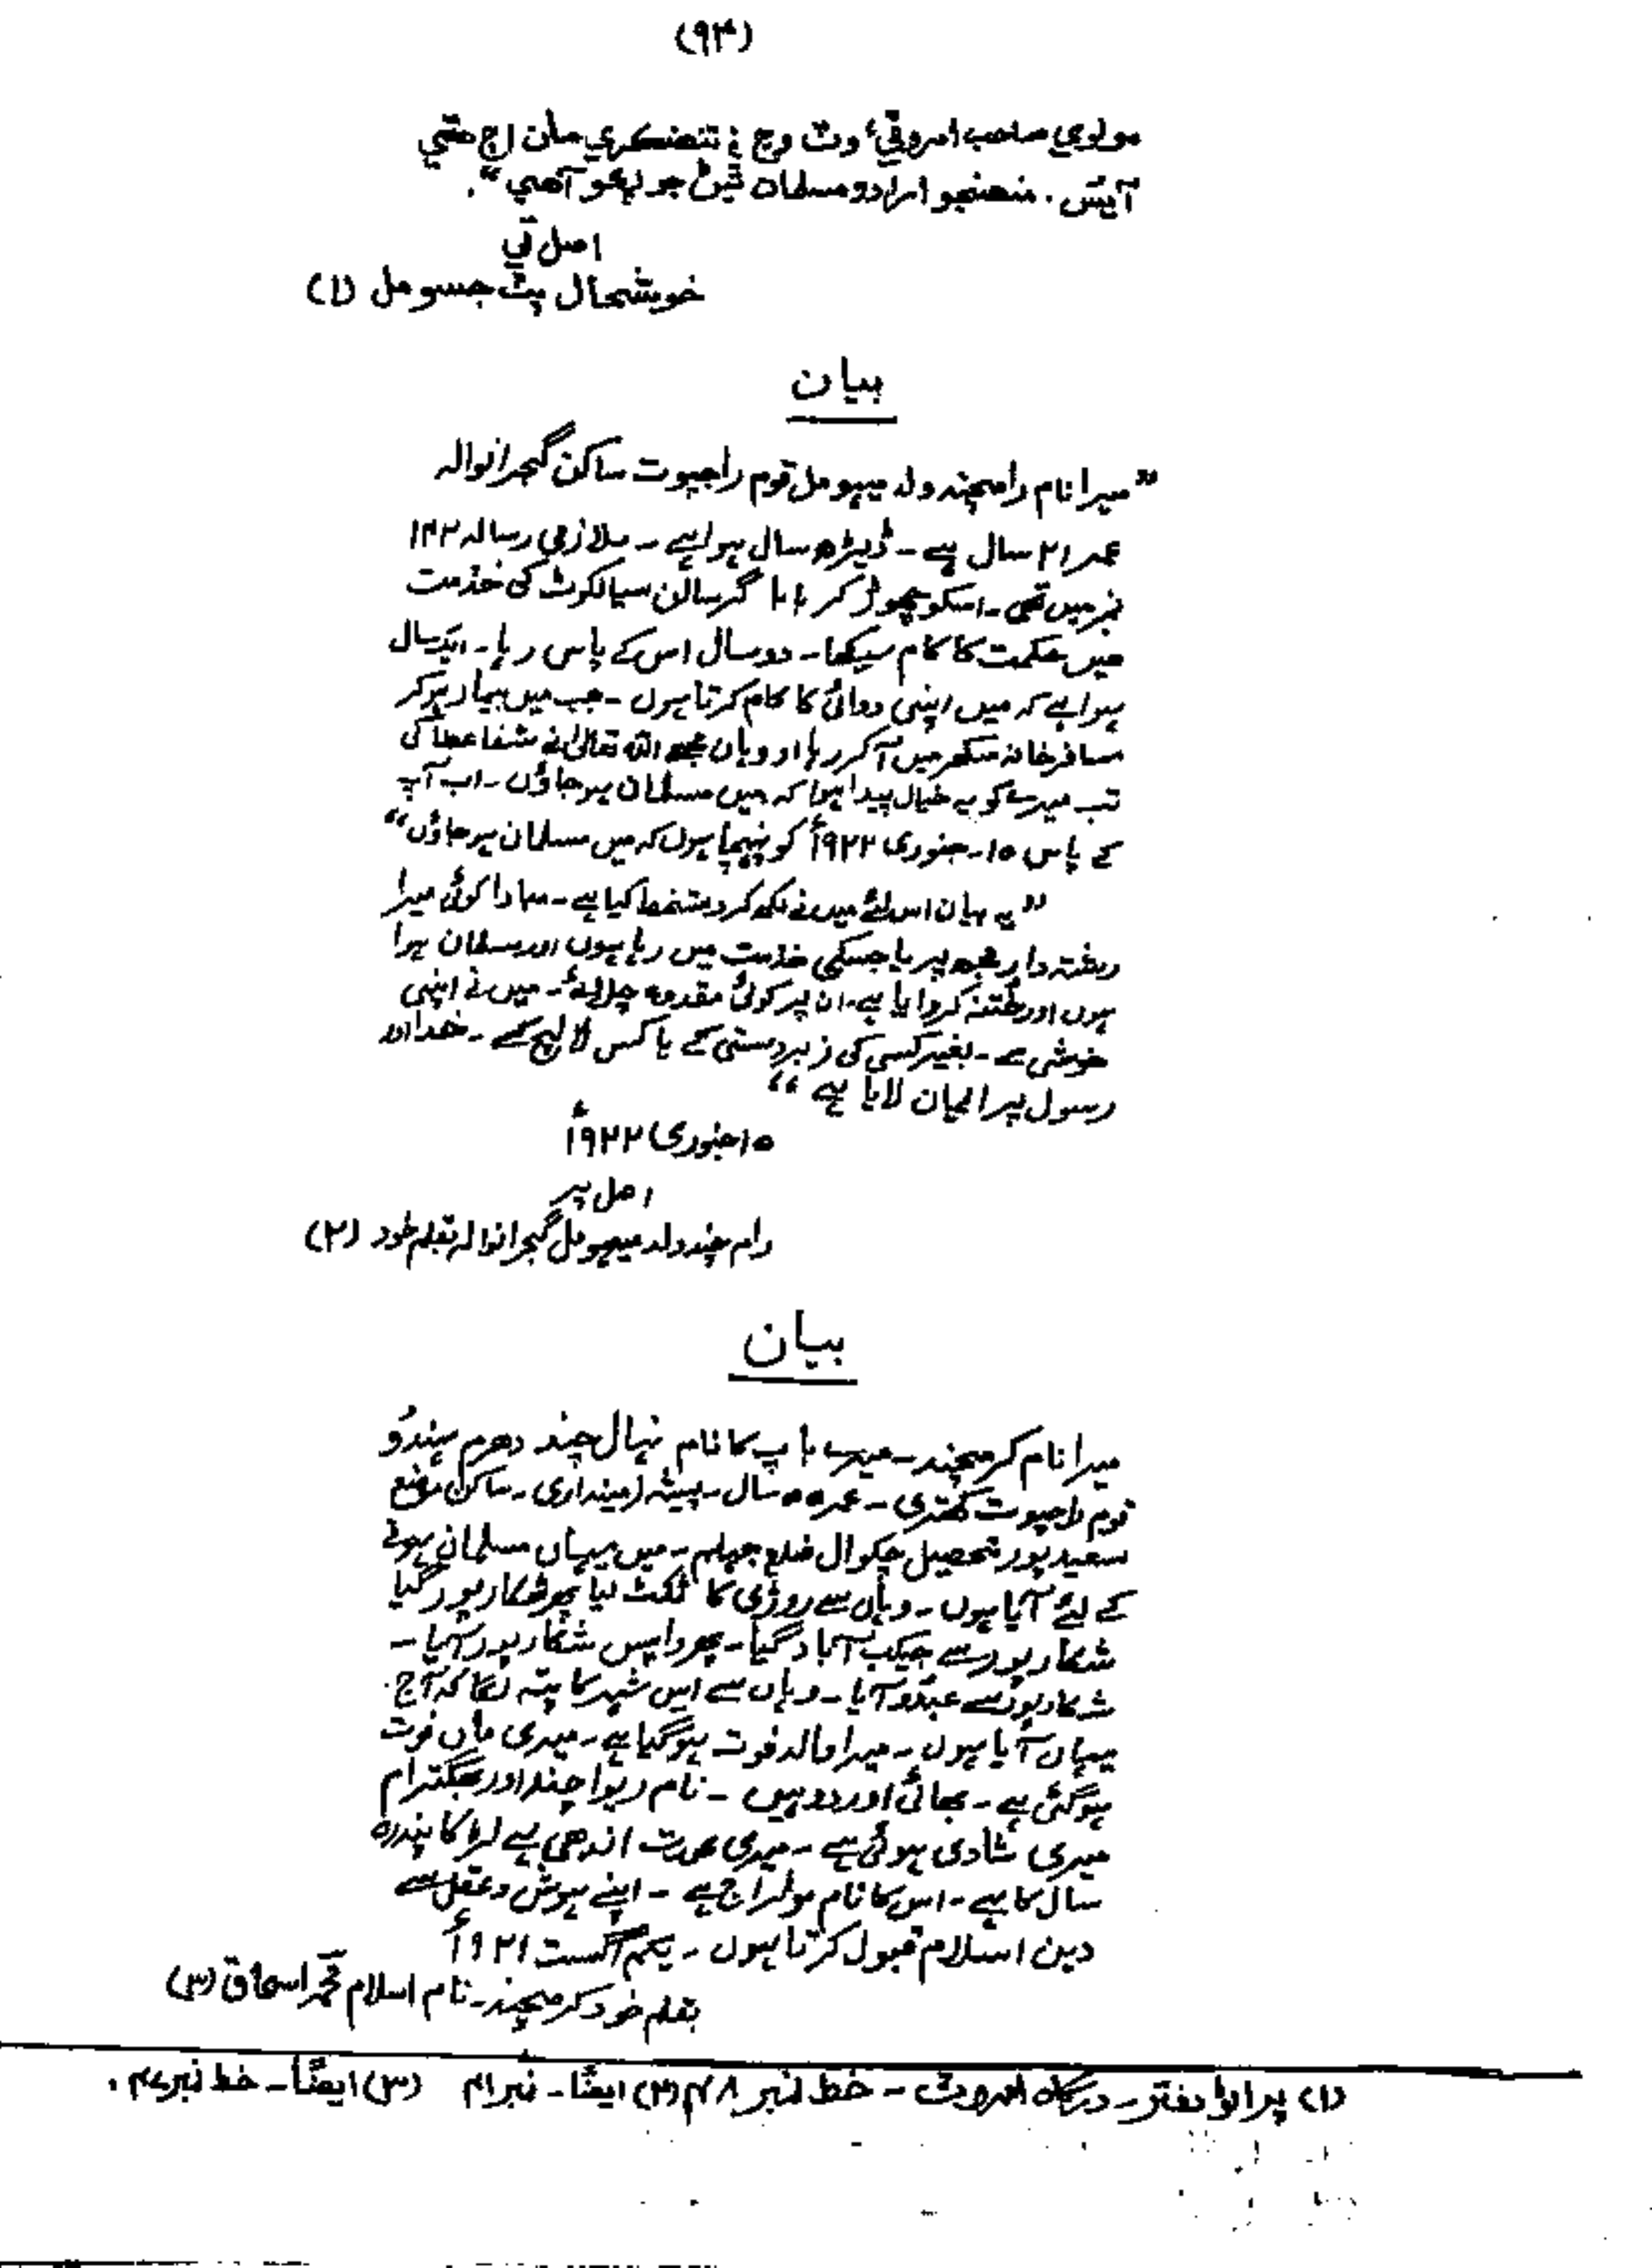 (۹۴)
مولوي صاحب امروٽيءَ وٽ وڃ ؛ تنھنڪري مان اڄ ھتي
آيس. منھنجو ارادو مسلمان ٿيڻ جو پڪو آھي“.
اصل تي
خوشحال پٽ جسومل (۱)
بيان
”میرا نام رامچند ولد میہو مل قوم راجپوت ساکن گجرانوالہ
عمر ۲۱ سال ہے ۔ ڈیڑھ سال ہوا ہے ۔ ملازمی رسالہ ۱۴۲
نمبر میں تھی ۔ اسکو چھوڑ کر بابا گرسالن سیالکوٹ کی خدمت
میں حکمت کا کام سیکھا ۔ دو سال اس کے پاس رہا ۔ ایک سال
ہوا ہے کہ میں اپنی دوائی کا کام کرتا ہوں ۔ جب میں بیمار ہو کر
مسافر خانہ سکھر میں آ کر رہا اور وہاں مجھ اللہ تعالیٰ نے شفا عطا کی
تب میرے کو یہ خیال پیدا ہوا کہ میں مسلمان ہو جاؤں ۔ اب آپ
کے پاس ۱۵ ۔ جنوری ۱۹۲۲ء کو پہنچا ہوں کہ میں مسلمان ہو جاؤں“
”یہ بیان اس لئے میں نے لکھ کر دستخط کیا ہے ۔ مبادا کوئی میرا
رشتہ دار مجھ پر یا جسکی خدمت میں رہا ہوں اور مسلمان ہوا
ہوں اور ختنہ کروایا ہے ۔ ان پر کوئی مقدمہ چلائے ۔ میں نے اپنی
خوشی سے ۔ بغیر کسی کی زبردستی کے یا کس لالچ کے ۔ خدا اور
رسول پر ایمان لایا ہے“
۱۵ جنوری ۱۹۲۲ء
اصل پر
رام چند ولد میہو مل گجرانوالہ بقلم خود (۲)
بيان
میرا نام کرمچند ۔ میرے باپ کا نام نہال چند دھرم ہندُو
قوم راجپوت کھتری ۔ عمر ۵۵ سال ۔ پیشہ زمینداری ۔ ساکن موضع
سعید پور تحصیل چکوال ضلع جہلم ۔ میں یہاں مسلمان ہونے
کے لئے آیا ہوں ۔ وہاں سے روڑی کا ٹکٹ لیا پھر شکارپور گیا
شکارپور سے جیکب آباد گیا ۔ پھر واپس شکارپور آیا ۔
شکارپور سے عبدو آیا ۔ وہاں سے اس شہر کا پتہ لگا کہ آج
یہاں آیا ہوں ۔ میرا والد فوت ہو گیا ہے ۔ میری ماں فوت
ہو گئی ہے ۔ بھائی اور دو ہیں ۔ نام ریوا چند اور بھگترام
میری شادی ہوئی ہے ۔ میری عورت اندھی ہے لڑکا پندرہ
سال کا ہے ۔ اس کا نام مولراج ہے ۔ اپنے ہوش و عقل سے
دین اسلام قبول کرتا ہوں ۔ یکم آگست ۱۹۲۱ء
بقلم خود کرمچند ۔ نام اسلام محمد اسحاق (۳)
(۱) پراڻو دفتر ۔ درگاھ امروٽ ۔ خط نمبر ۴۸ (۲) ايضًا ۔ نمبر ۴۱ (۳) ايضًا ۔ خط نمبر ۴۷ .